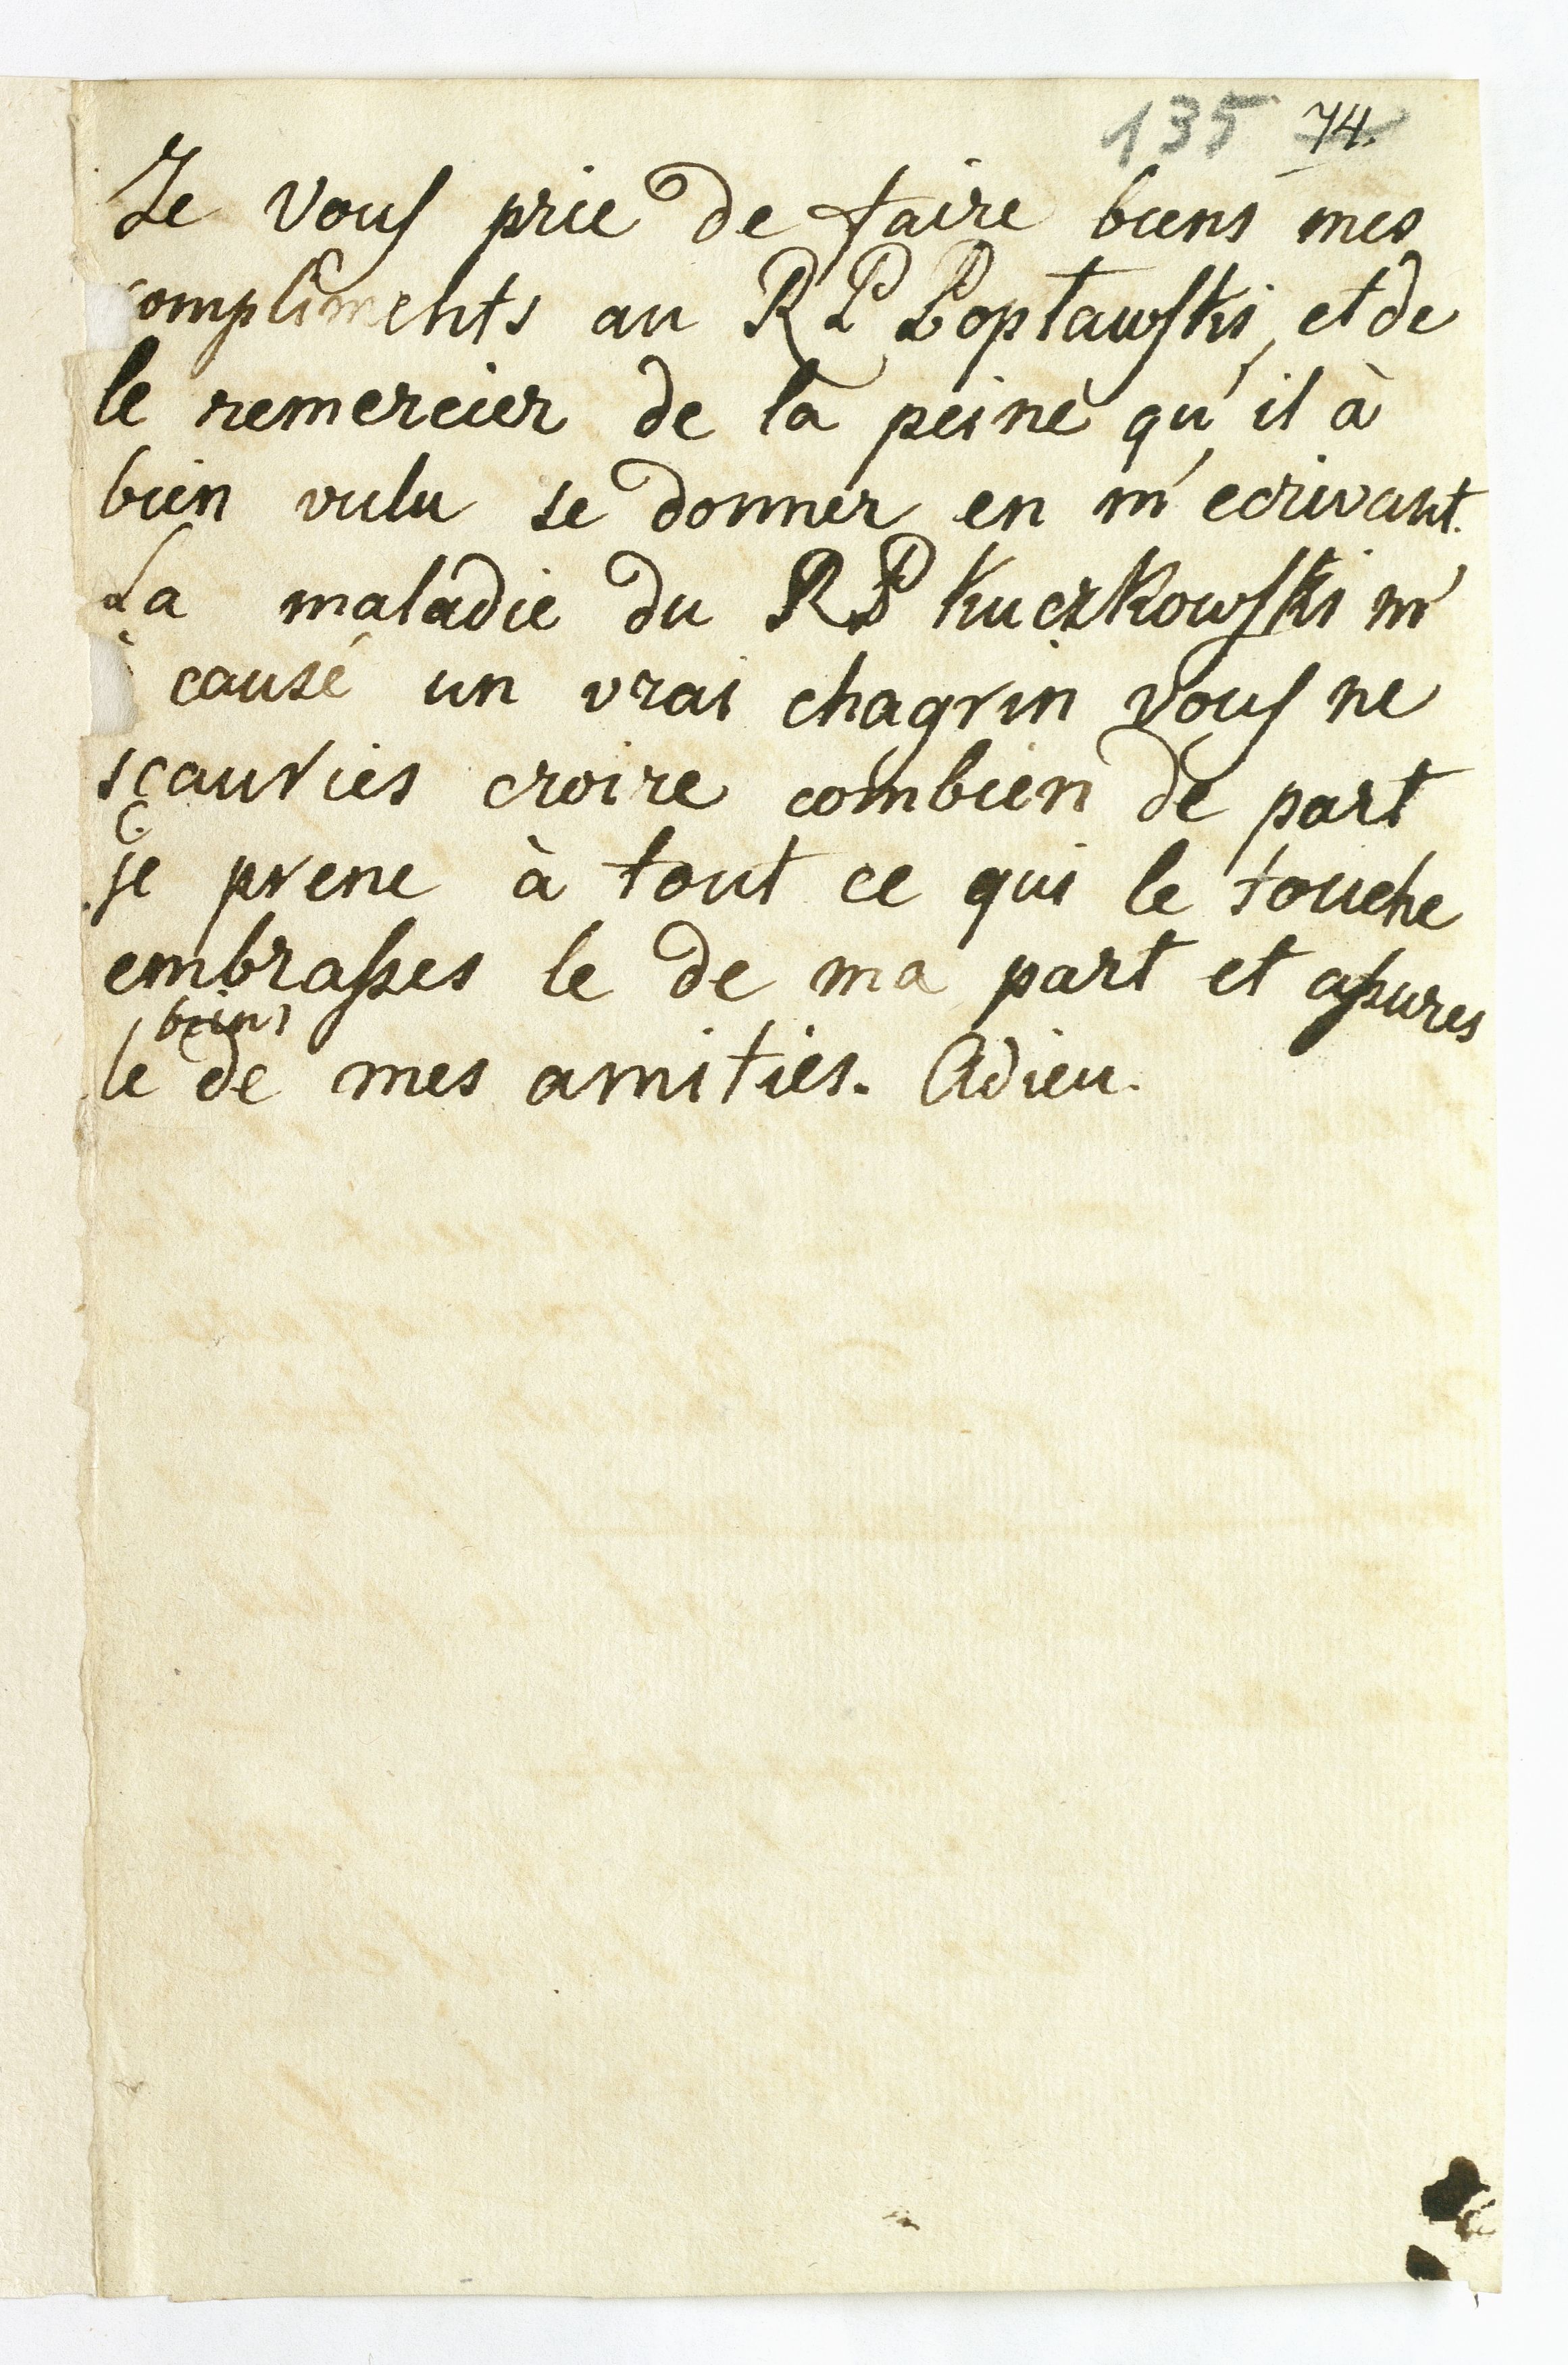 135 74.
Je vous prie de faire biens mes
compliments au R P Poptawski, et de
le remercier de la peine qu'il à
bien vulu se donner en m'ecrivant.
La maladie du R P Kuczkowski m'
à causé un vrai chagrin vous ne
sçauries croire combien de part
je prene à tout ce qui le touche
embrasses le de ma part et assures
biens
le de mes amities. Adieu.